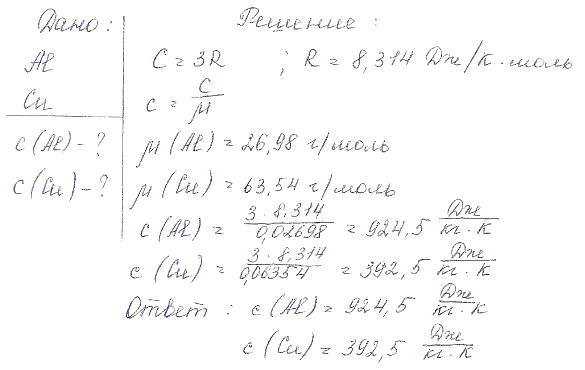 Дано: Решение:
Al C = 3R ; R = 8,314 Дж/К·моль
Cu c = C/μ
c (Al) - ? μ (Al) = 26,98 г/моль
c (Cu) - ? μ (Cu) = 63,54 г/моль
c (Al) = 3·8,314/0,02698 = 924,5 Дж/кг·К
c (Cu) = 3·8,314/0,06354 = 392,5 Дж/кг·К
Ответ: c (Al) = 924,5 Дж/кг·К
c (Cu) = 392,5 Дж/кг·К